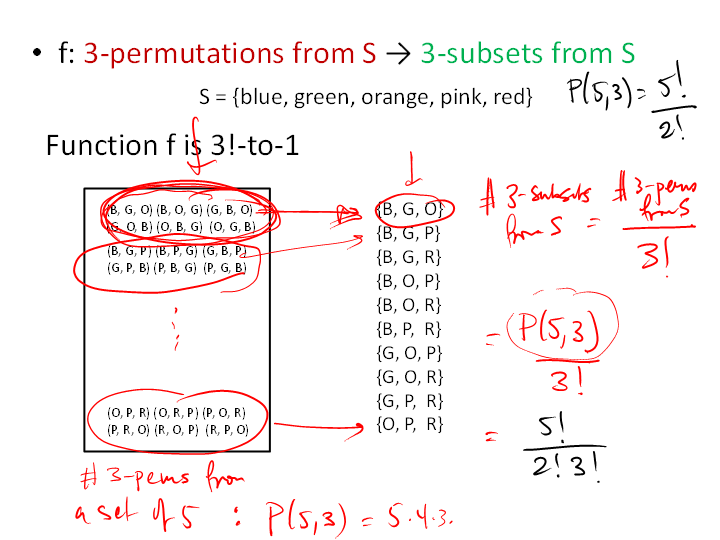 • f: 3-permutations from S → 3-subsets from S
S = {blue, green, orange, pink, red}
P(5,3) = 5!/2!
Function f is 3!-to-1
(B, G, O) (B, O, G) (G, B, O)
(G, O, B) (O, B, G) (O, G, B)
(B, G, P) (B, P, G) (G, B, P)
(G, P, B) (P, B, G) (P, G, B)
(O, P, R) (O, R, P) (P, O, R)
(P, R, O) (R, O, P) (R, P, O)
{B, G, O}
{B, G, P}
{B, G, R}
{B, O, P}
{B, O, R}
{B, P, R}
{G, O, P}
{G, O, R}
{G, P, R}
{O, P, R}
# 3-subsets from S = # 3-perms from S / 3!
= P(5,3) / 3!
= 5! / 2! 3!
# 3-perms from
a set of 5 : P(5,3) = 5·4·3.